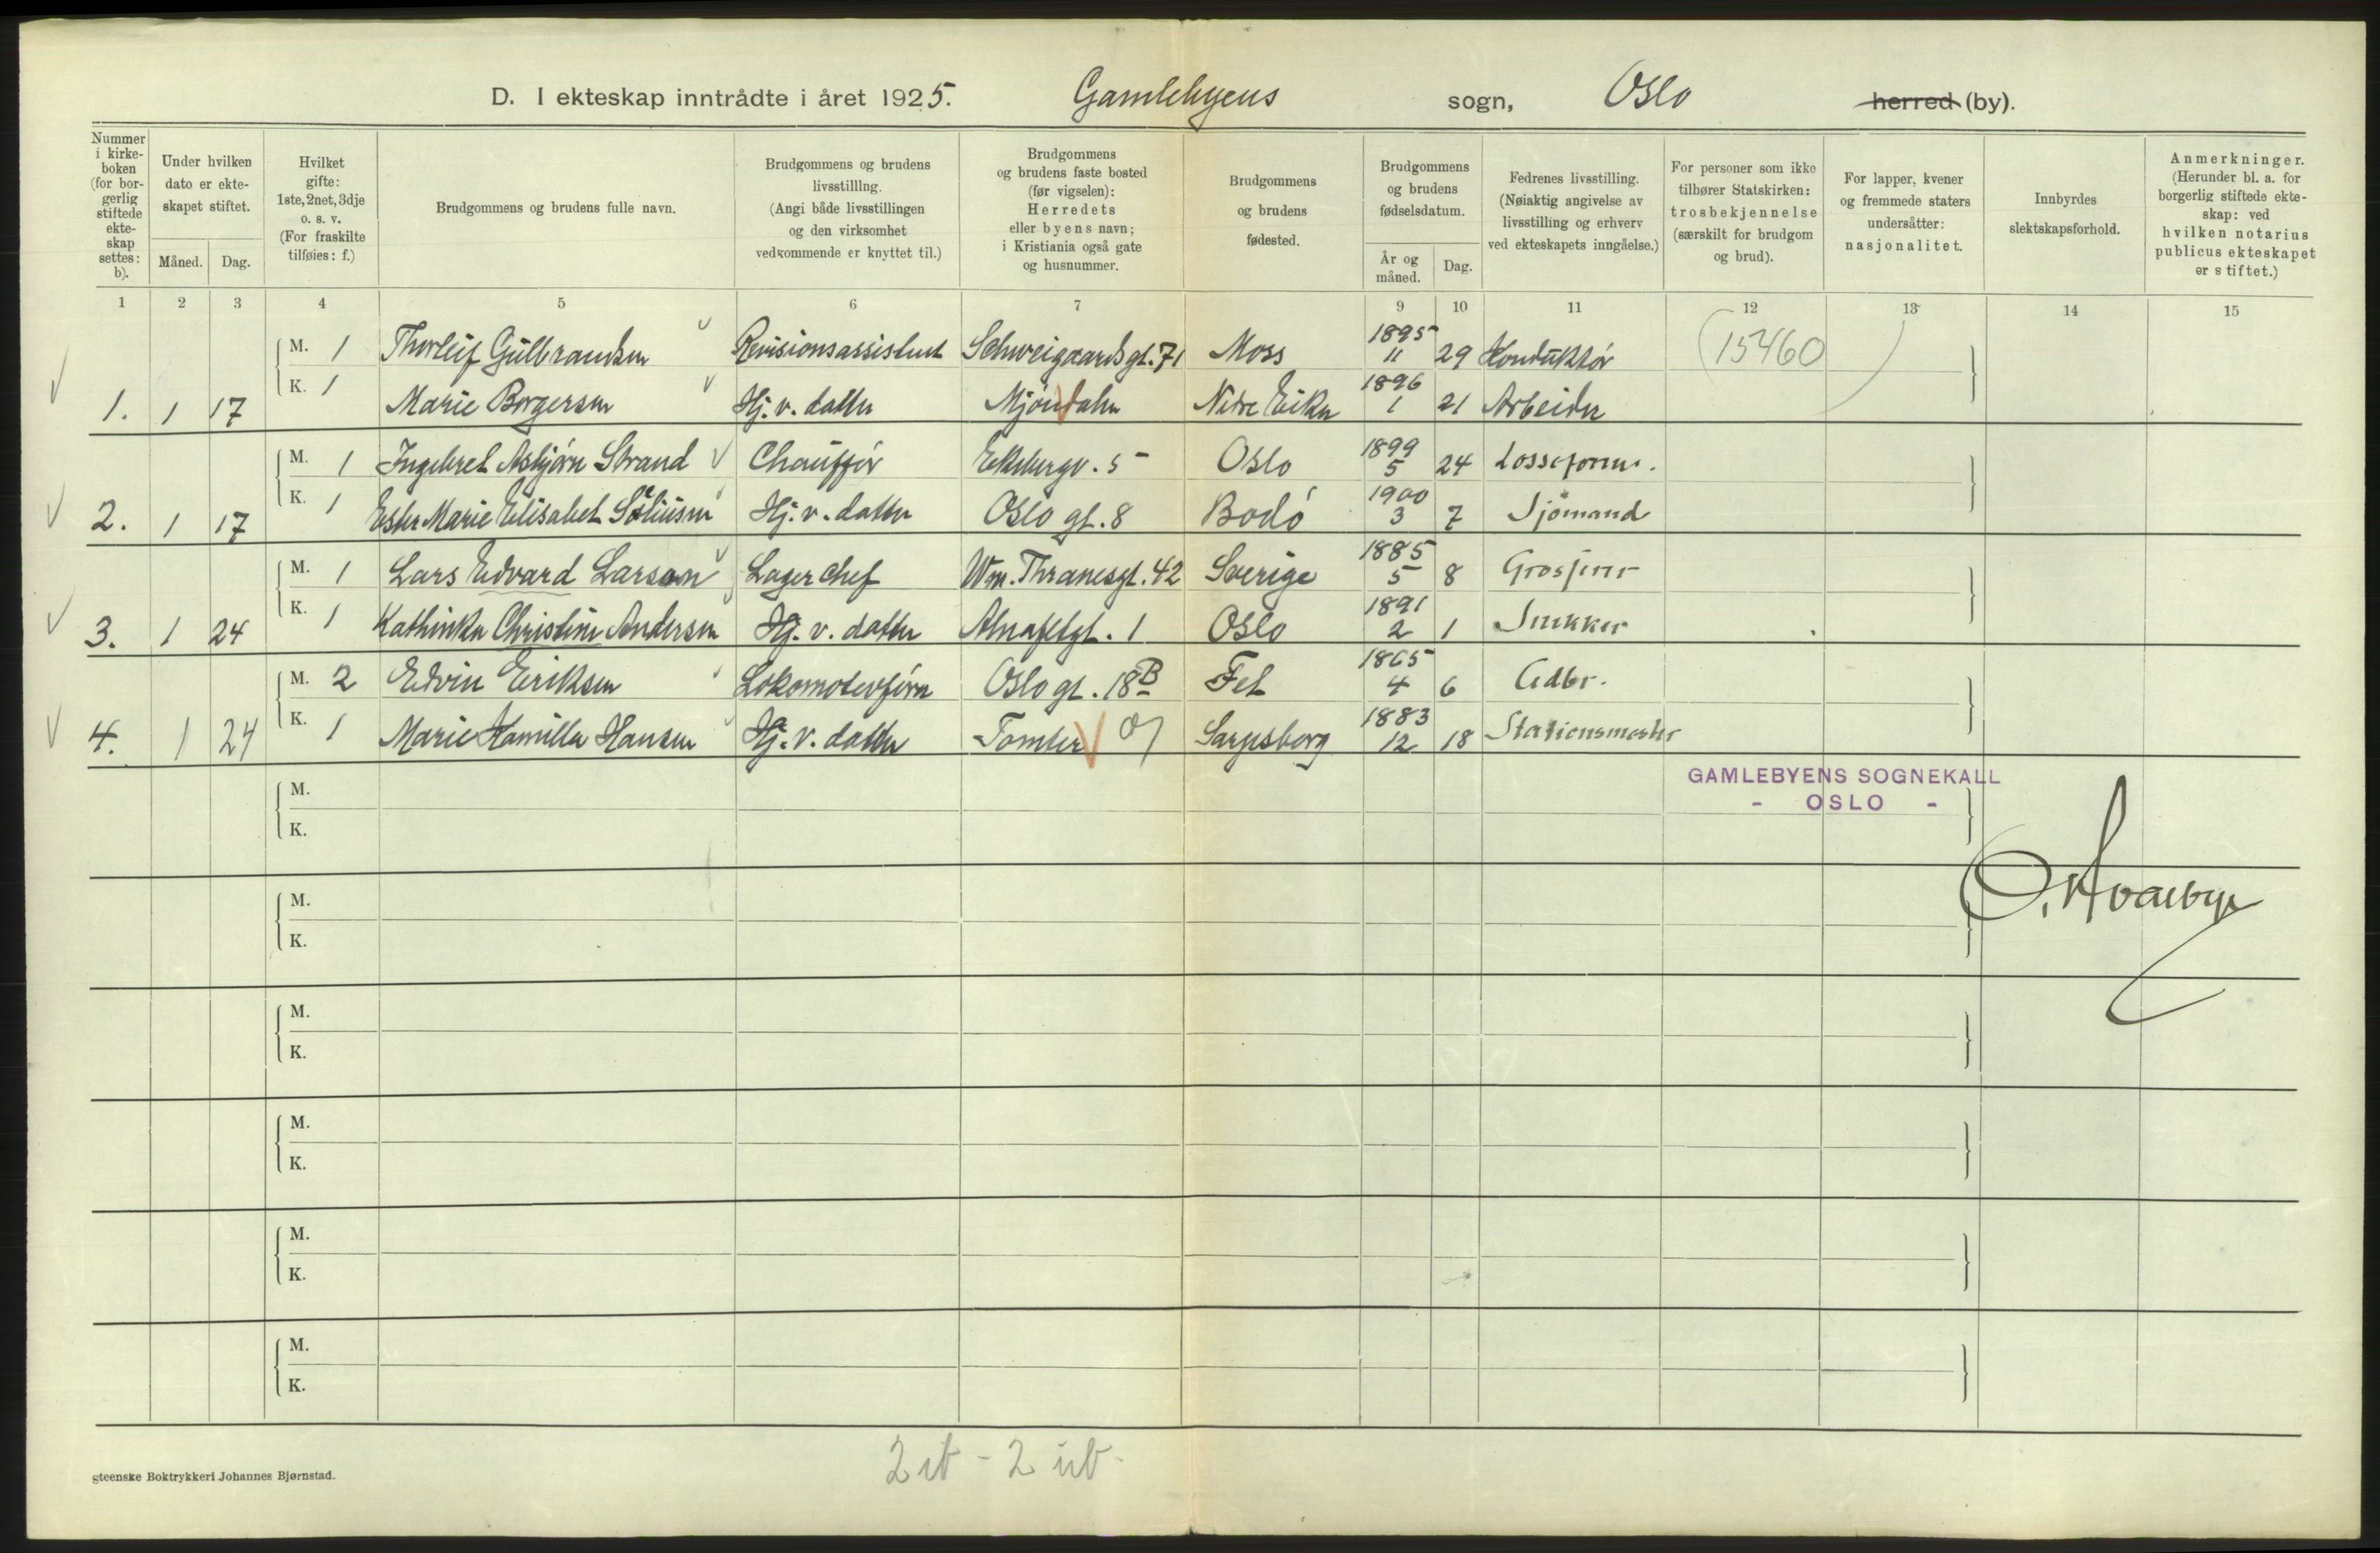 D. I ekteskap inntrådte i året 1925. Gamlebyens sogn, Oslo herred (by).
Nummer i kirke-boken (for bor-gerlig stiftede ekte-skap settes: b).
Under hvilken dato er ekte-skapet stiftet.
Måned. Dag.
Hvilket gifte: 1ste, 2net, 3dje o. s. v. (For fraskilte tilføies: f.)
Brudgommens og brudens fulle navn.
Brudgommens og brudens livsstilling. (Angi både livsstillingen og den virksomhet vedkommende er knyttet til.)
Brudgommens og brudens faste bosted (før vigselen): Herredets eller byens navn; i Kristiania også gate og husnummer.
Brudgommens og brudens fødested.
Brudgommens og brudens fødselsdatum.
År og måned. Dag.
Fedrenes livsstilling. (Nøiaktig angivelse av livsstilling og erhverv ved ekteskapets inngåelse.)
For personer som ikke tilhører Statskirken: trosbekjennelse (særskilt for brudgom og brud).
For lapper, kvener og fremmede staters undersåtter: nasjonalitet.
Innbyrdes slektskapsforhold.
Anmerkninger. (Herunder bl. a. for borgerlig stiftede ekte-skap: ved hvilken notarius publicus ekteskapet er stiftet.)
1 2 3 4 5 6 7 8 9 10 11 12 13 14 15
M. 1 Thorleif Gulbrandsen Revisionsassistent Schweigaardsgt. 71 Moss 1895 11 29 Konduktör 15460
1. 1 17 K. 1 Marie Borgersen Hj. v. datter Mjöndalen Nedre Eiker 1896 1 21 Arbeider
M. 1 Ingebret Asbjörn Strand Chaufför Ekebergv. 5 Oslo 1899 5 24 Losseform.
2. 1 17 K. 1 Ester Marie Elisabet Hj. v. datter Oslo gt. 8 Bodö 1900 3 7 Sjömand
M. 1 Lars Edvard Larson Lager chef Wm. Thranesgt. 42 Sverige 1885 5 8 Grosserer
3. 1 24 K. 1 Kathinka Christine Andersen Hj. v. datter Alnafetgt. 1 Oslo 1891 2 1 Snekker
M. 2 Edvin Eriksen Lokomotivförer Oslo gt. 18 B Fet 1865 4 6 Gdbr.
4. 1 24 K. 1 Marie Kamilla Hansen Hj. v. datter Tomter Sarpsborg 1883 12 18 Stationsmester
GAMLEBYENS SOGNEKALL
- OSLO -
M.
K.
M.
K.
M.
K.
M.
K.
M.
K.
M.
K.
2 ib - 2 ub.
steenske Boktrykkeri Johannes Bjørnstad.